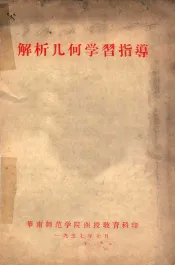 解析几何学習指導
華南師范学院函授敎育科印
一九五七年七月